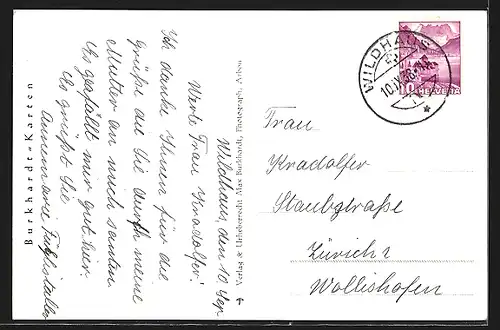 Wildhaus, den 10 Sep
Werte Frau Kradolfer!
Ich danke Ihnen für die
grüße die Sie durch meine
Mutter an mich sandten
Es gefällt mir gut hier.
Es grüßt Sie
Annemarie
Burkhardt-Karten
Verlag & Urheberrecht Max Burkhardt, Photograph, Arbon
WILDHAUS
10.IX.36
10 HELVETIA
Frau
Kradolfer
Staubstraße
Zürich 2
Wollishofen